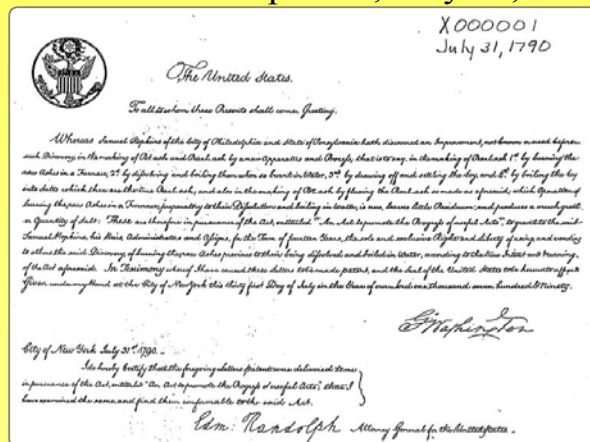 X000001
July 31, 1790
The United States.
To all to whom these Presents shall come, Greeting.
Whereas Samuel Hopkins of the City of Philadelphia and State of Pensylvania hath discovered an Improvement, not known or used before
such Discovery, in the making of Pot ash and Pearl ash by a new Apparatus and Process, that is to say, in the making of Pearl ash 1st by burning the
raw Ashes in a Furnace, 2d by dissolving and boiling them when so burnt in Water, 3d by drawing off and settling the Ley, and 4th by boiling the Ley
into Salts which then are the true Pearl ash; and also in the making of Pot ash by fluxing the Pearl ash so made as aforesaid; which Operation of
burning the raw Ashes in a Furnace, preparatory to their Dissolution and boiling in Water, is new, leaves little Residuum; and produces a much greater
Quantity of Salt: These are therefore in pursuance of the Act, entituled "An Act to promote the Progress of useful Arts", to grant to the said
Samuel Hopkins, his Heirs, Administrators and Assigns, for the Term of fourteen Years, the sole and exclusive Right and Liberty of using and vending
to others the said Discovery, of burning the raw Ashes previous to their being dissolved and boiled in Water, according to the true Intent and Meaning
of the Act aforesaid. In Testimony whereof I have caused these Letters to be made patent, and the Seal of the United States to be hereunto affixed
Given under my Hand at the City of New York this thirty first Day of July in the Year of our Lord one thousand seven hundred & Ninety.
G. Washington
City of New York July 31st 1790. -
I do hereby certify that the foregoing Letters patent were delivered to me
in pursuance of the Act, entituled "An Act to promote the Progress of useful Arts"; that I
have examined the same and find them conformable to the said Act.
Edm: Randolph Attorney General for the United States.